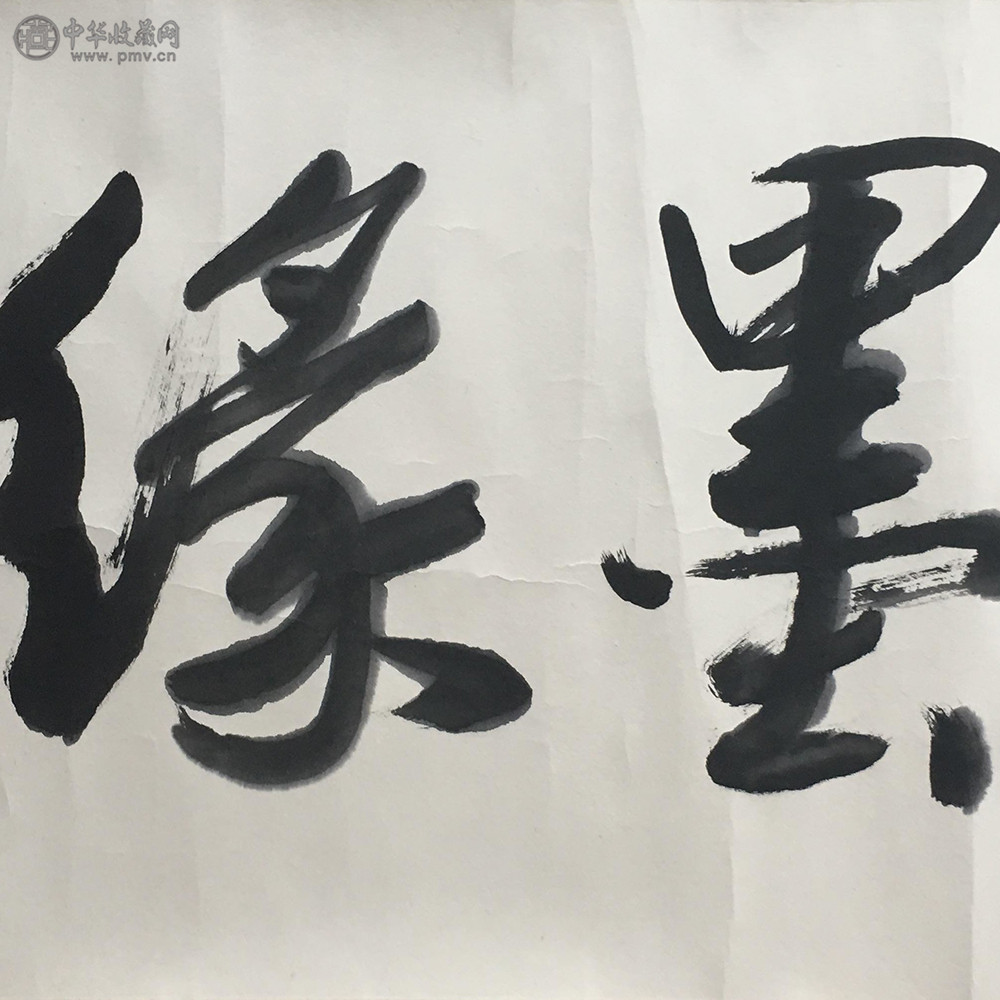 中华收藏网
www.pmv.cn
墨缘